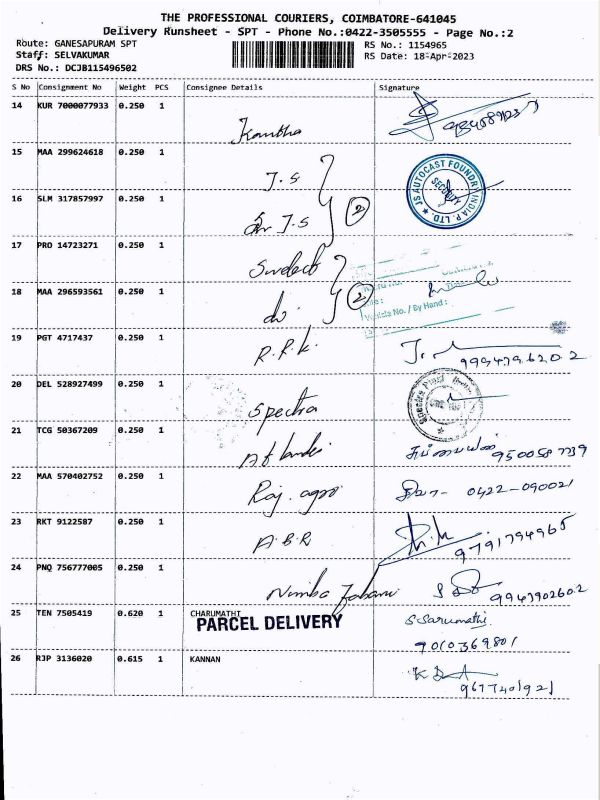 THE PROFESSIONAL COURIERS, COIMBATORE-641045
Delivery Runsheet - SPT - Phone No.:0422-3505555 - Page No.:2
Route: GANESAPURAM SPT
RS No.: 1154965
Staff: SELVAKUMAR
RS Date: 18-Apr-2023
DRS No.: DCJB115496502
S No Consignment No Weight PCS Consignee Details Signature
14 KUR 7000077933 0.250 1
15 MAA 299624618 0.250 1 J.S
JS AUTOCAST FOUNDRY INDIA P. LTD.
SECURITY
16 SLM 317857997 0.250 1 J.S 2
17 PRO 14723271 0.250 1
18 MAA 296593561 0.250 1 do 2
Vehicle No. / By Hand :
19 PGT 4717437 0.250 1 R.R.K. 9994796202
20 DEL 528927499 0.250 1 Spectra
21 TCG 50367209 0.250 1
22 MAA 570402752 0.250 1 Raj. agro 0422-090021
23 RKT 9122587 0.250 1 A.B.R 9791794965
24 PNQ 756777005 0.250 1 Nimba 9943902602
25 TEN 7505419 0.620 1 CHARUMATHI S. Sarumathi
PARCEL DELIVERY
9010369801
26 RJP 3136020 0.615 1 KANNAN
9677401921